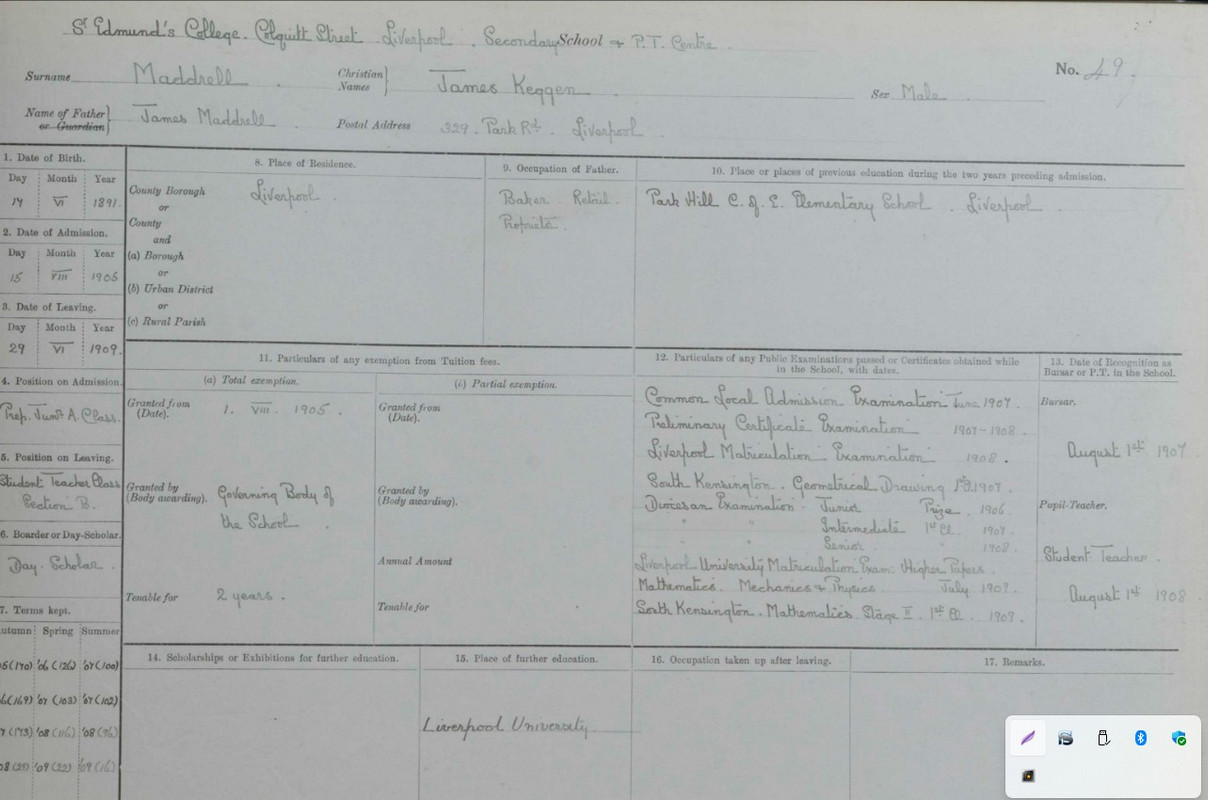 St Edmund's College. Colquitt Street Liverpool. Secondary School & P.T. Centre.
No. 49.
Surname Maddrell. Christian Names James Keggen. Sex Male.
Name of Father or Guardian James Maddrell. Postal Address 329. Park Rd. Liverpool.
1. Date of Birth.
Day Month Year
14 VI 1891.
2. Date of Admission.
Day Month Year
15 VIII 1905
3. Date of Leaving.
Day Month Year
29 VI 1909.
4. Position on Admission.
Prep. Junr A. Class.
5. Position on Leaving.
Student Teacher Class
Section B.
6. Boarder or Day-Scholar.
Day. Scholar.
7. Terms kept.
utumn Spring Summer
'06 (126) '07 (100)
'07 (103) '07 (102)
'08 (116)
'09 (22) '09 (16)
8. Place of Residence.
County Borough Liverpool.
or
County
and
(a) Borough
or
(b) Urban District
or
(c) Rural Parish
9. Occupation of Father.
Baker Retail.
Proprietor.
10. Place or places of previous education during the two years preceding admission.
Park Hill C. of E. Elementary School. Liverpool.
11. Particulars of any exemption from Tuition fees.
(a) Total exemption.
Granted from (Date). 1. VIII. 1905.
Granted by (Body awarding). Governing Body of
the School.
Tenable for 2 years.
Partial exemption.
Granted from
(Date).
Granted by
(Body awarding).
Annual Amount
Tenable for
12. Particulars of any Public Examinations passed or Certificates obtained while
in the School, with dates.
Common Local Admission Examination June 1907.
Preliminary Certificate Examination 1907-1908.
Liverpool Matriculation Examination 1908.
South Kensington. Geometrical Drawing 1907.
Diocesan Examination. Junior Prize. 1906.
" " Intermediate 1st Cl. 1907.
" " Senior " 1908.
Liverpool University Matriculation Exam: Higher Papers.
Mathematics. Mechanics & Physics. July 1909.
South Kensington. Mathematics Stage II. 1st Cl. 1909.
13. Date of Recognition as
Bursar or P.T. in the School.
Bursar.
August 1st 1907
Pupil-Teacher.
Student Teacher.
August 1st 1908
14. Scholarships or Exhibitions for further education.
15. Place of further education.
Liverpool University
16. Occupation taken up after leaving.
17. Remarks.